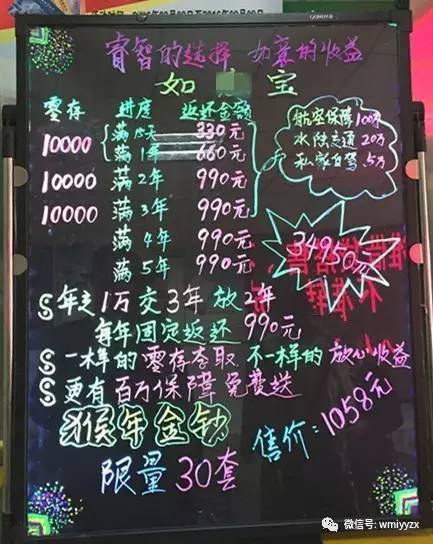 睿智的选择 如意的收益
如 宝
零存 进度 返还金额
10000 满15天 330元
满1年 660元
10000 满2年 990元
10000 满3年 990元
满4年 990元
满5年 990元
航空保障 100万
水陆交通 20万
私家自驾 5万
34950元
年交1万交3年放2年
每年固定返还990元
一样的零存整取 不一样的放心收益
更有百万保障免费送
猴年金钞 售价:1058元
限量30套
微信号: wmiyyzx